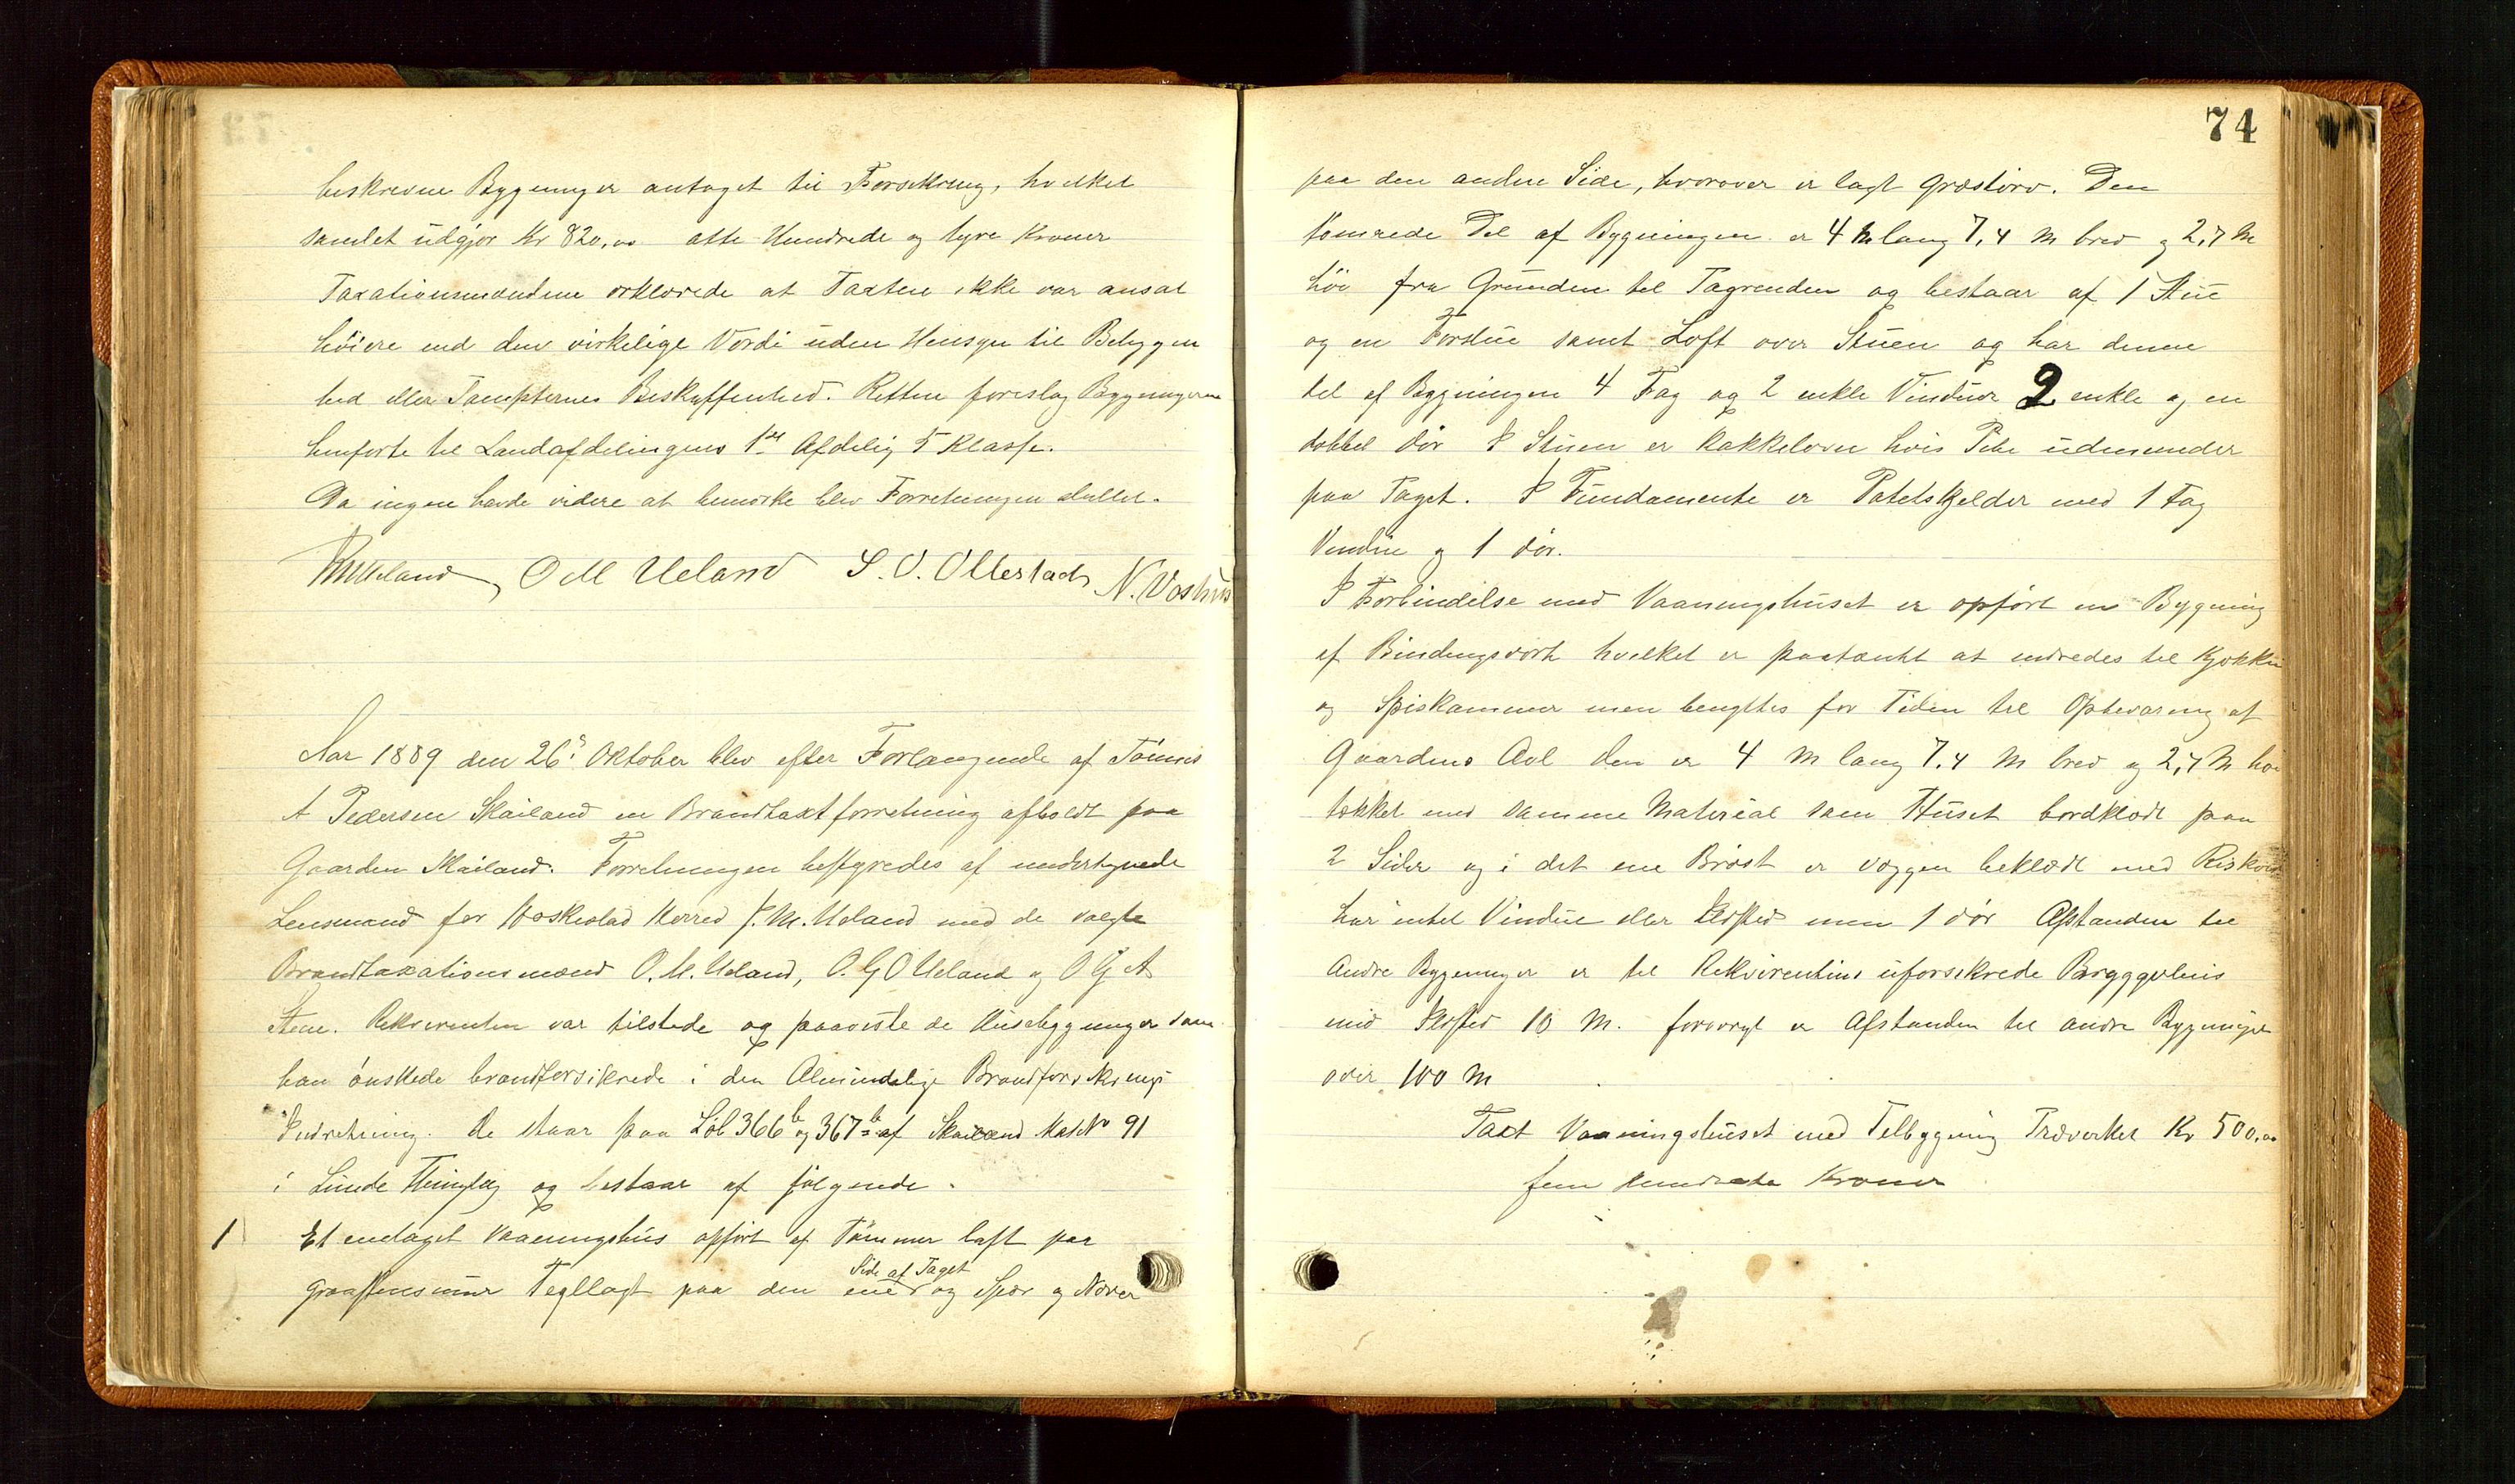 beskrevne Bygninger antaget til Forsikring, hvilket
samlet udgjør Kr 820,00 otte Hundrede og tyve Kroner
Taxationsmændene erklærede at Taxten ikke var ansat
höiere end den virkelige Værdi uden Hensyn til Beliggen
hed eller Tomternes Beskaffenhed. Retten foreslog Bygningerne
henførte til Landafdelingens 1ste Afdelig 5 Klasse.
Da ingen havde videre at bemærke blev Forretningen sluttet.
Ueland, O M Ueland S. O. Ollestad N. Voshus
Aar 1889 den 26de Oktober blev efter Forlangende af Tönnes
A Pedersen Skailand en Brandtaxtforretning afholdt paa
Gaarden Skailand. Forretningen bestyredes af undertegnede
Lensmand for Heskestad Herred J. M. Ueland med de valgte
Brandtaxationsmænd O. M. Ueland, O. G O Ueland og O G A
Stene. Rekvirenten var tilstede og paaviste de Husebygninger som
han önskede brandforsikrede i den Almindelige Brandforsikrings
Indretning. De staar paa Löb 366 b og 367 b af Skailand Mat No 91
i Lunde Thinglag og bestaar af fölgende.
1 Et endaget Vaaningshus opfört af Tömmer laft paa
Side af Taget
Graastensmur Tegllagt paa den ene og Spær og Næver
74
paa den anden Side, hvorover er lagt Græstörv. Den
tömrede Del af Bygningen er 4 M lang 7,4 M bred og 2,7 M
höi fra Grunden til Tagrenden og bestaar af 1 Stue
og en Forstue samt Loft over Stuen og har denne
del af Bygningen 4 Fag og 2 enkle Vinduer 2 enkle og en
dobbel Dör I Stuen er Kakkelovn hvis Pibe udmunder
paa Taget. I Fundamente er Potetskjelder med 1 Fag
Vindue og 1 dör.
I Forbindelse med Vaaningshuset er opfört en Bygning
af Bindingsværk hvilket er paatænkt at indredes til Kjøkken
og Spiskammer men benyttes for Tiden til Opbevaring af
Gaardens Avl den er 4 M lang 7,4 M bred og 2,7 M höi
tækket med samme Material som Huset bordklædt paa
2 Sider og i det ene Bröst er væggen beklædt med Riskvist
har intet Vindue eller Ildsted men 1 dör Afstanden til
Andre Bygninger er til Rekvirentens uforsikrede Bryggerhus
med Ildsted 10 M. forövrigt er Afstanden til andre Bygninger
over 100 M
Taxt Vaaningshuset med Tilbygning Træverket Kr 500,00
fem Hundrede Kroner